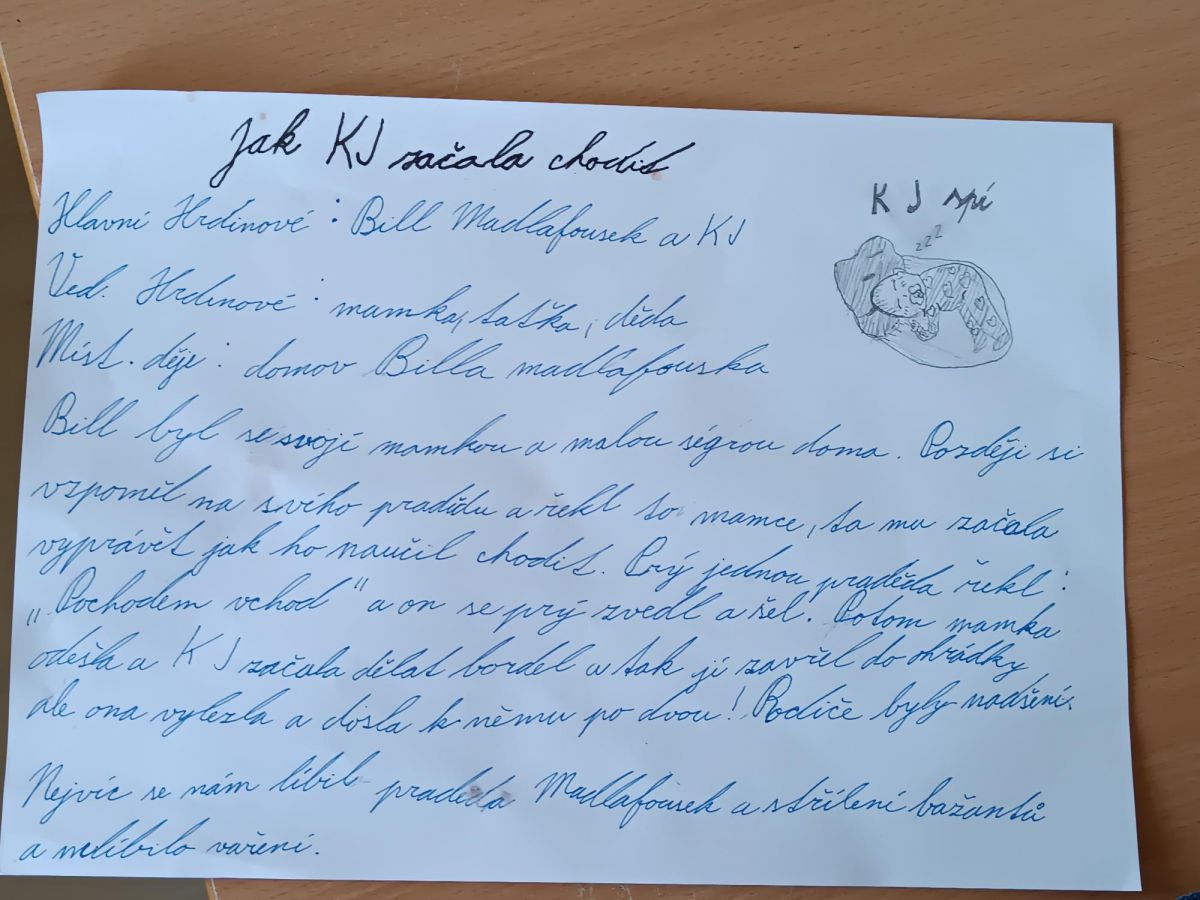 Jak KJ začala chodit
KJ spí
zzz
Hlavní Hrdinové: Bill Madlafousek a KJ
Ved. Hrdinové: mamka, taťka, děda
Míst. děje: domov Billa madlafouska
Bill byl se svojí mamkou a malou ségrou doma. Později si
vzpoměl na svího pradědu a řekl to mamce, ta mu začala
vyprávět jak ho naučil chodit. Prý jednou praděda řekl:
„Pochodem vchod" a on se prý zvedl a šel. Potom mamka
odešla a KJ začala dělat bordel a tak jí zavřel do ohrádky
ale ona vylezla a došla k němu po dvou! Rodiče byly nadšení.
Nejvíc se nám líbil praděda Madlafousek a střílení bažantů
a nelíbilo vaření.